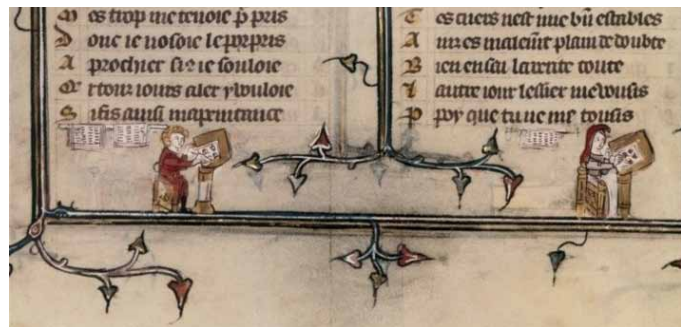 M es trop me tenoie p̄ pris
D onc ie nosoie le porpris
A prochier si 9 ie souloie
Et touz iours aler y uouloie
S i fis ausi ma
T es cuers nest mie bn̄ estables
A inz es malem̄t plain de doubte
B ien en sai la uerite toute
L autre iour lessier me uousis
P poy que tu ne me tousis